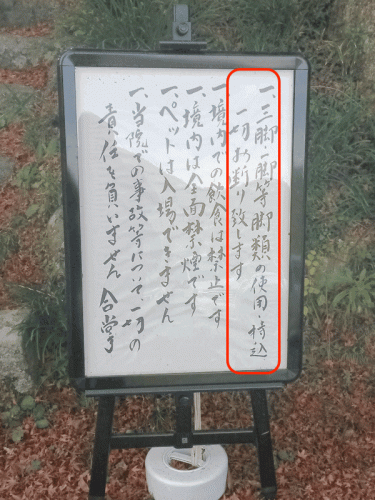 一、三脚・一脚等脚類の使用・持込
一切お断り致します
一、境内での飲食は禁止です
一、境内は全面禁煙です
一、ペットは入場できません
一、当院での事故等について、一切の
責任を負いません 合掌